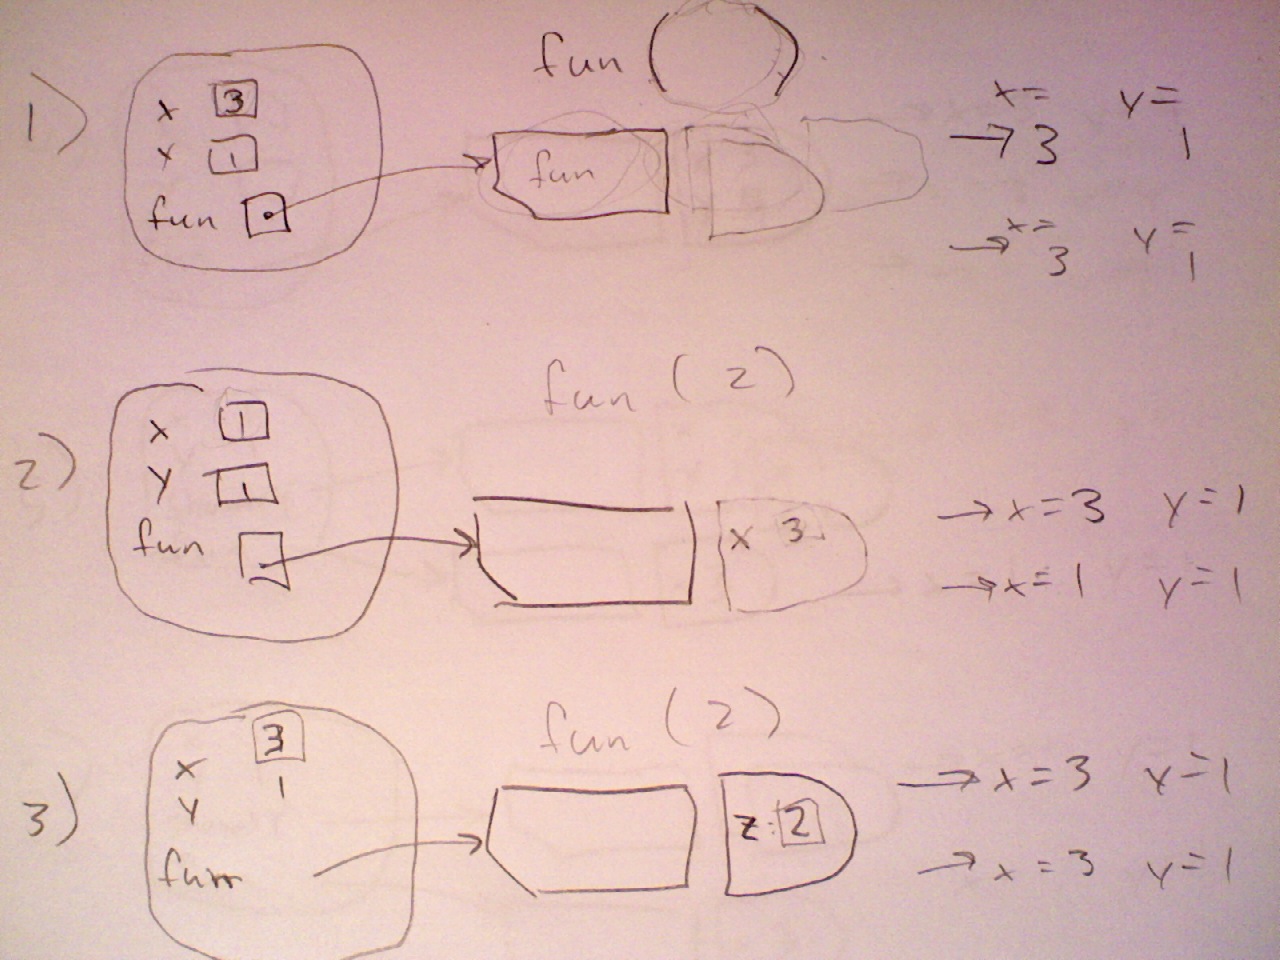 1)
x 3
y 1
fun
fun ( )
fun
x= y=
→ 3 1
→ x= y=
3 1
2)
x 1
y 1
fun
fun (2)
x 3
→ x=3 y=1
→ x=1 y=1
3)
x 3
y 1
fun
fun (2)
z: 2
→ x=3 y=1
→ x=3 y=1